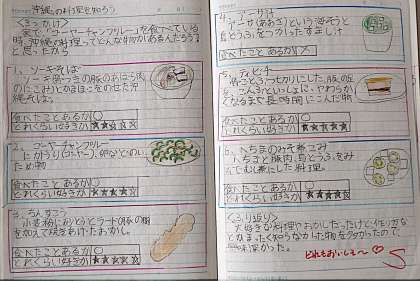 沖縄の料理を知ろう
<きっかけ>
家で、「ゴーヤーチャンプルー」を食べている
時、沖縄の料理ってどんな物があるんだろう
と思ったから
1、ソーキそば
ソーキ(骨つきの豚のあばら肉
のにこみ)とかまぼこをのせた沖
縄そば。
食べたことあるか○
どれくらい好きか
2、ゴーヤーチャンプルー
にがうり(ゴーヤー)、卵などのい
ため物
食べたことあるか○
どれくらい好きか
3、ちんすこう
小麦粉にさとうとラード(豚の脂)
を加えて焼きあげたおかし。
食べたことあるか○
どれくらい好きか
4、アーサ汁
アーサ(あおさ)という海そうと
島どうふをつかったすまし汁
食べたことあるか
5、ティビチ
骨ごとぶつ切りにした、豚の足
を、こんぶといっしょに、やわらか
くなるまで長時間にこんだ物
食べたことあるか
どれくらい好きか
6、へちまのみそ煮こみ
へちまと豚肉、島どうふをみ
そでにこむ煮にした料理。
食べたことあるか
どれくらい好きか
<ふり返り>
大好きな料理やおかしだったけど、作り方な
どまったく知らなかった物も多かったので、
興味深かった。
どれもおいしそ〜♡